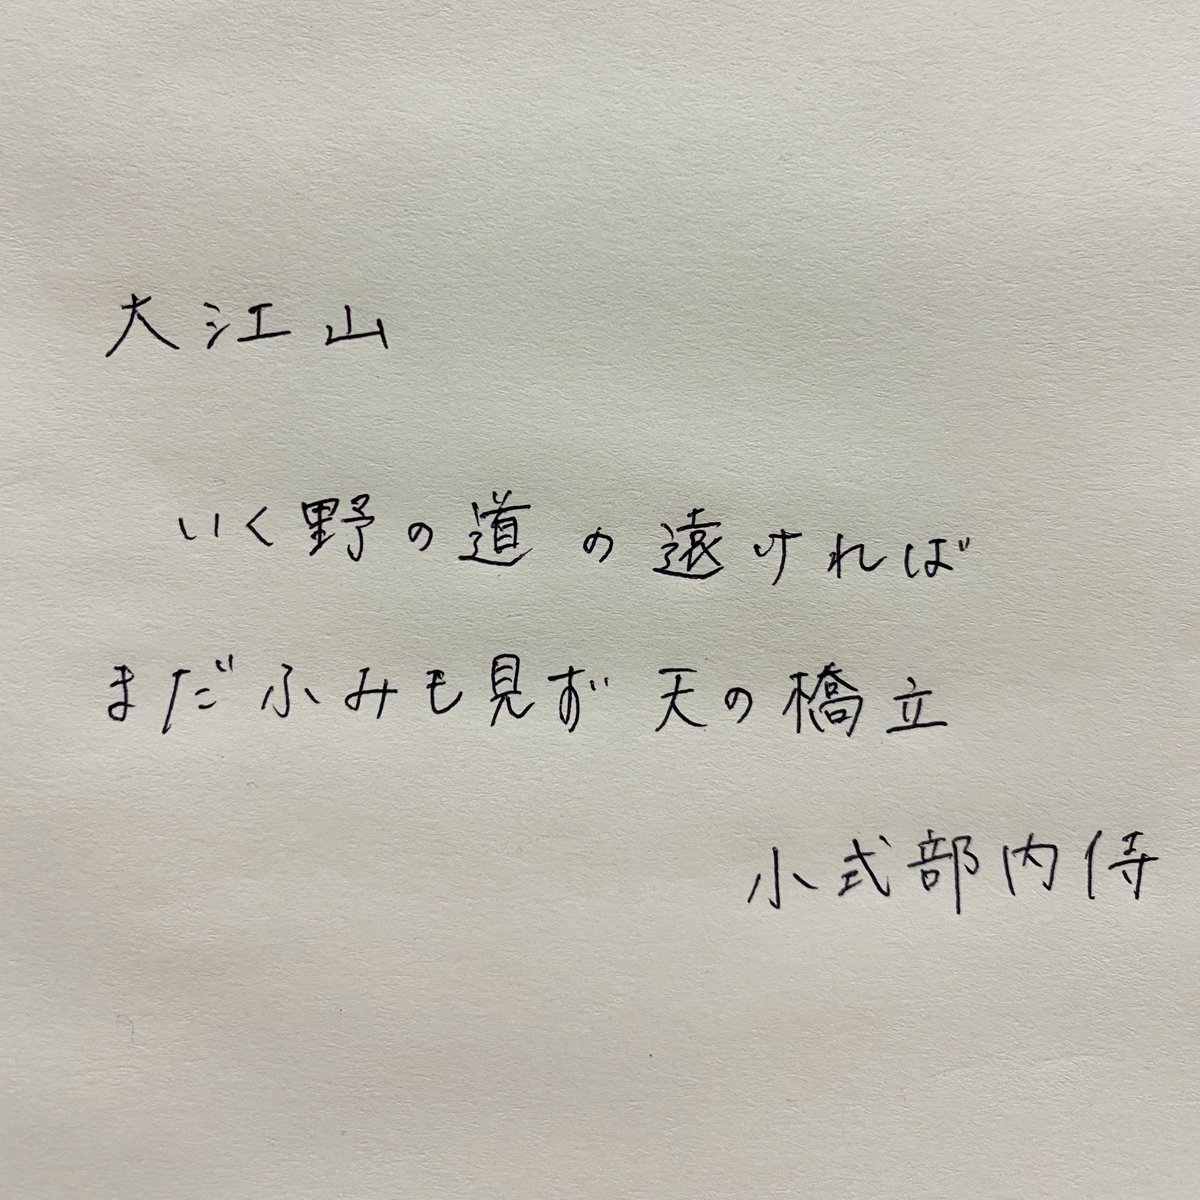 大江山
いく野の道の遠ければ
まだふみも見ず天の橋立
小式部内侍